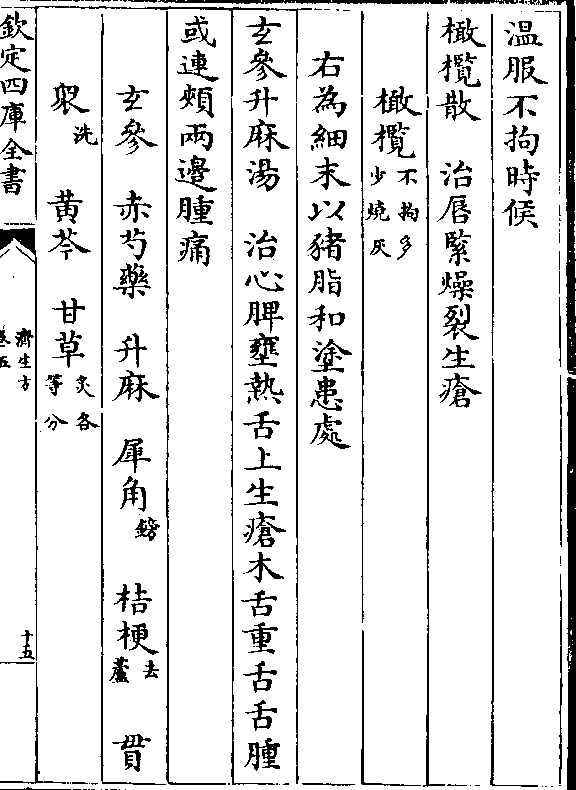 溫服不拘時候
橄欖散　治唇緊燥裂生瘡
橄欖不拘多少燒灰
右為細末以豬脂和塗患處
玄參升麻湯　治心脾壅熱舌上生瘡木舌重舌舌腫
或連頰兩邊腫痛
玄參　赤芍藥　升麻　犀角鎊　桔梗去蘆　貫
衆洗　黃芩　甘草炙各等分
欽定四庫全書
濟生方
卷五
十五